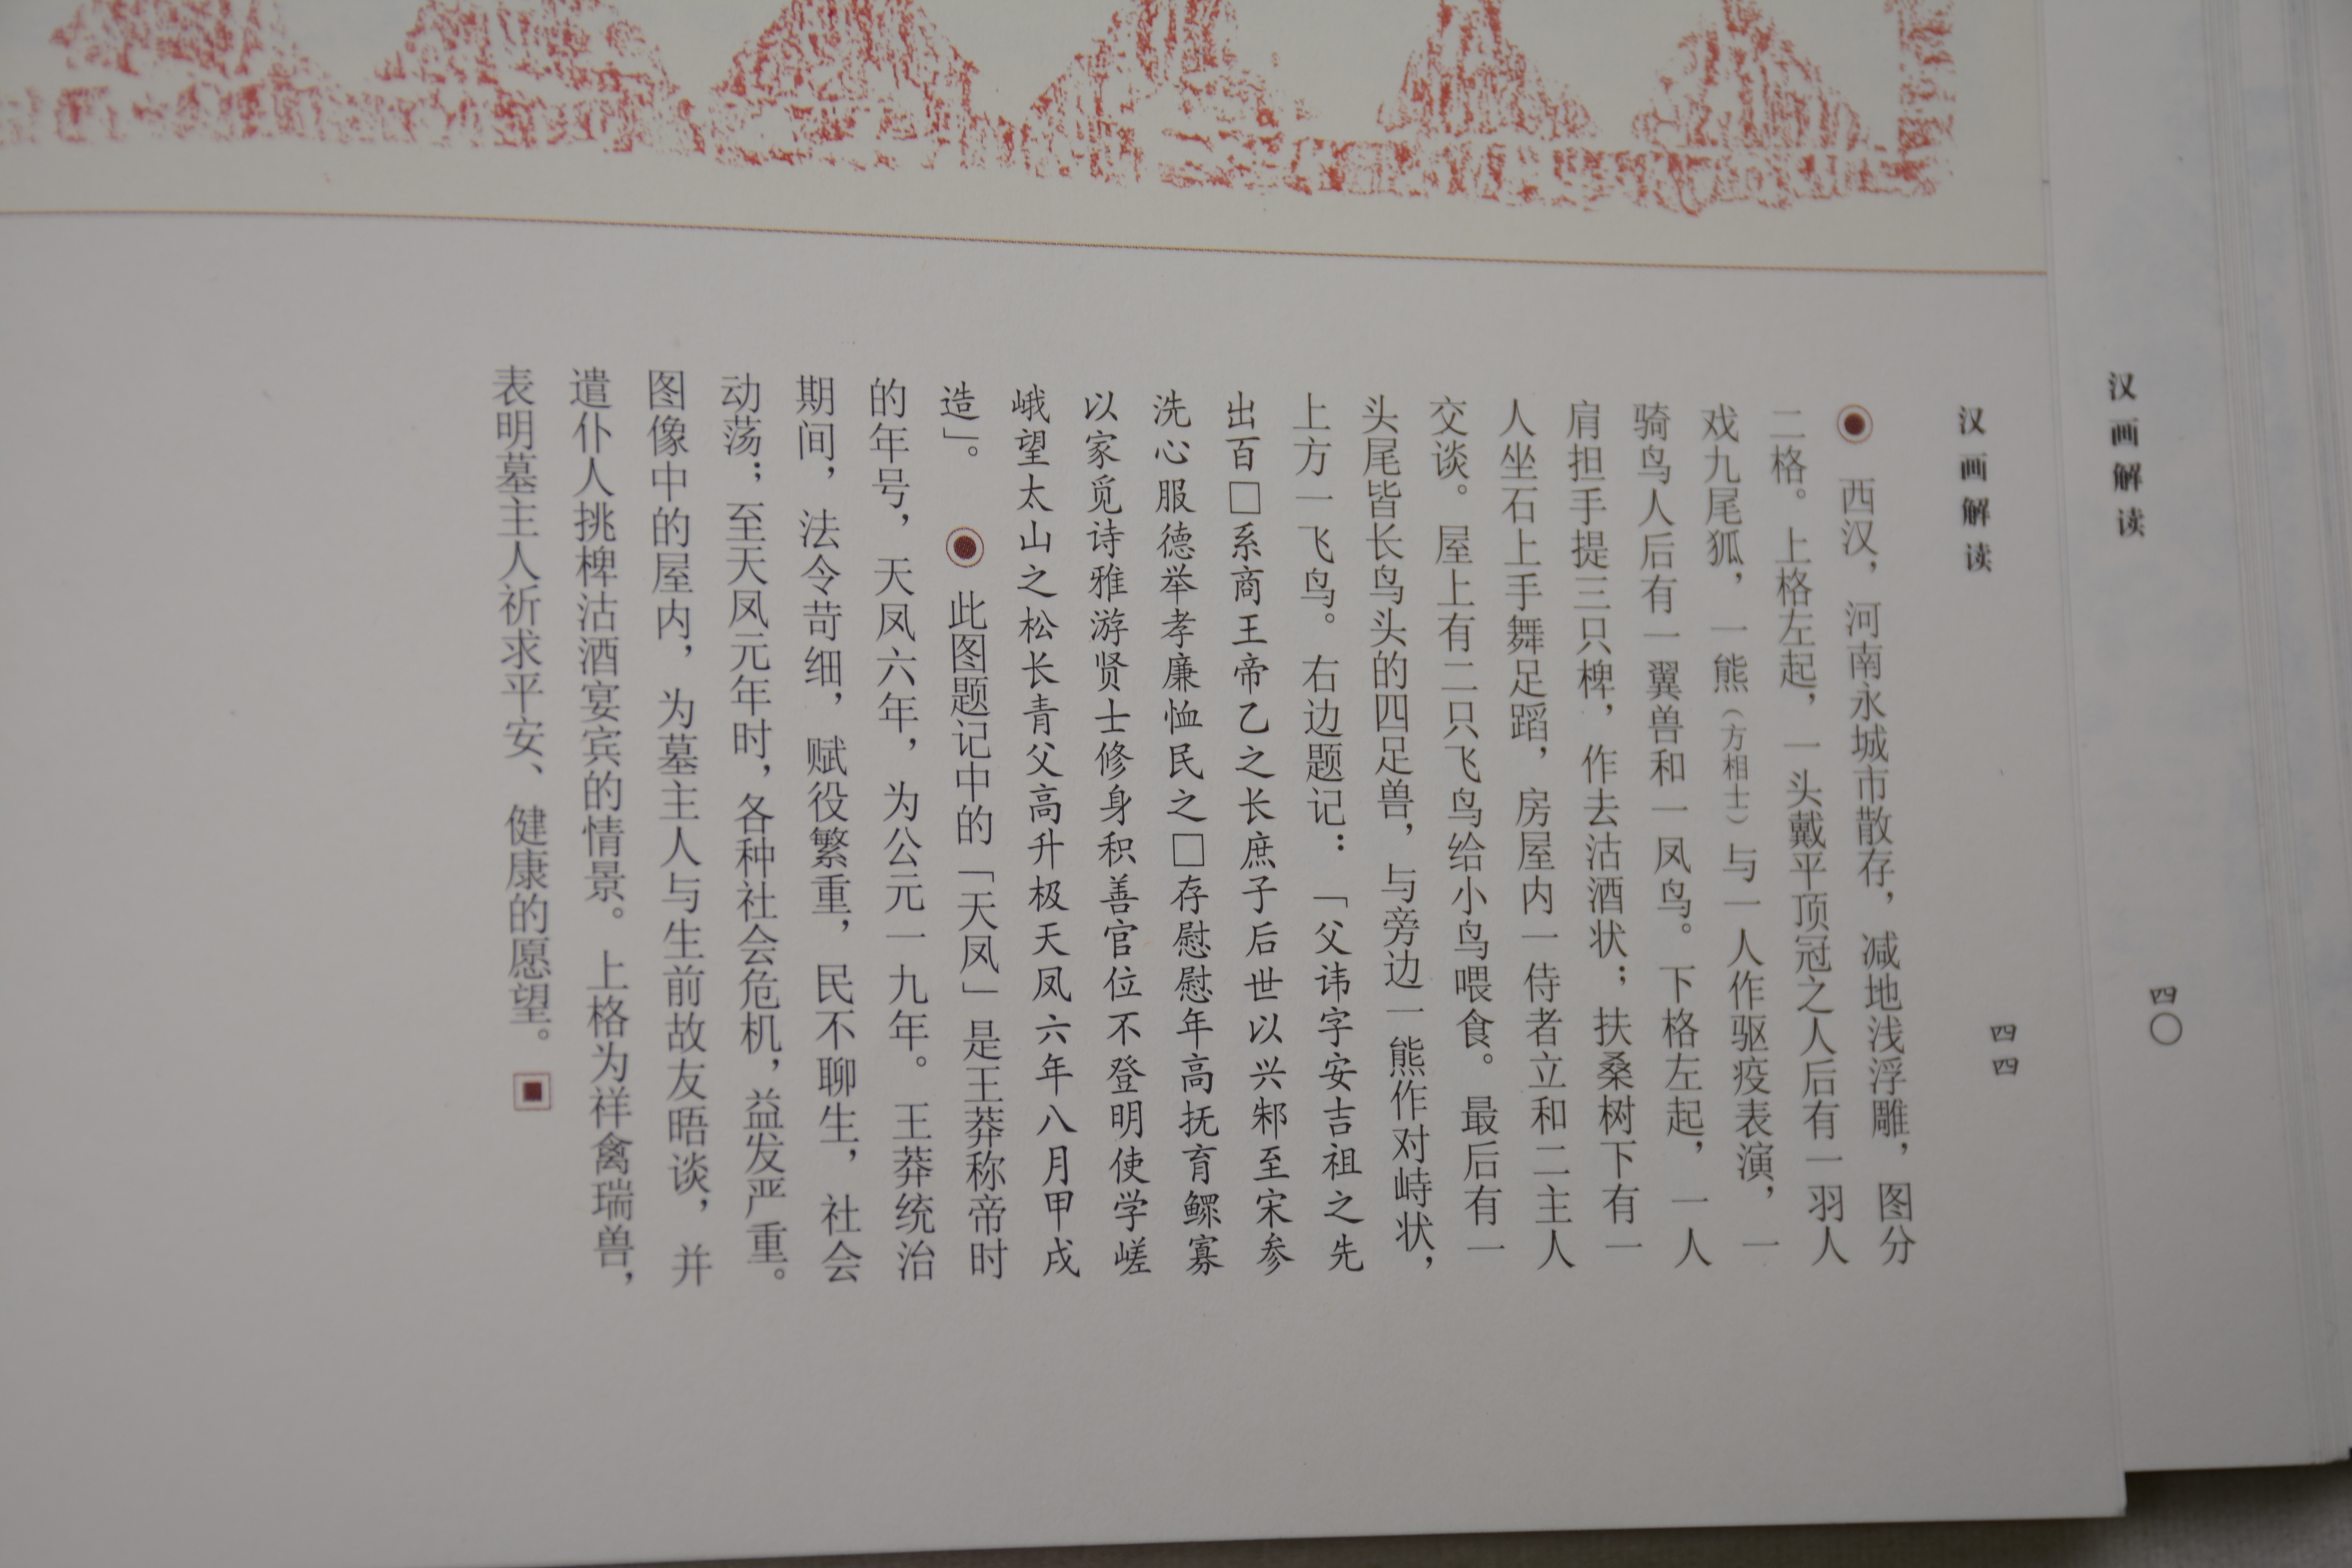 汉画解读
四〇
汉画解读
四四
西汉，河南永城市散存，减地浅浮雕，图分
二格。上格左起，一头戴平顶冠之人后有一羽人
戏九尾狐，一熊（方相士）与一人作驱疫表演，一
骑鸟人后有一翼兽和一凤鸟。下格左起，一人
肩担手提三只椑，作去沽酒状；扶桑树下有一
人坐石上手舞足蹈，房屋内一侍者立和二主人
交谈。屋上有二只飞鸟给小鸟喂食。最后有一
头尾皆长鸟头的四足兽，与旁边一熊作对峙状，
上方一飞鸟。右边题记：「父讳字安吉祖之先
出百□系商王帝乙之长庶子后世以兴邾至宋参
洗心服德举孝廉恤民之□存慰慰年高抚育鳏寡
以家觅诗雅游贤士修身积善官位不登明使学嵯
峨望太山之松长青父高升极天凤六年八月甲戌
造」。 此图题记中的「天凤」是王莽称帝时
的年号，天凤六年，为公元一九年。王莽统治
期间，法令苛细，赋役繁重，民不聊生，社会
动荡；至天凤元年时，各种社会危机，益发严重。
图像中的屋内，为墓主人与生前故友晤谈，并
遣仆人挑椑沽酒宴宾的情景。上格为祥禽瑞兽，
表明墓主人祈求平安、健康的愿望。